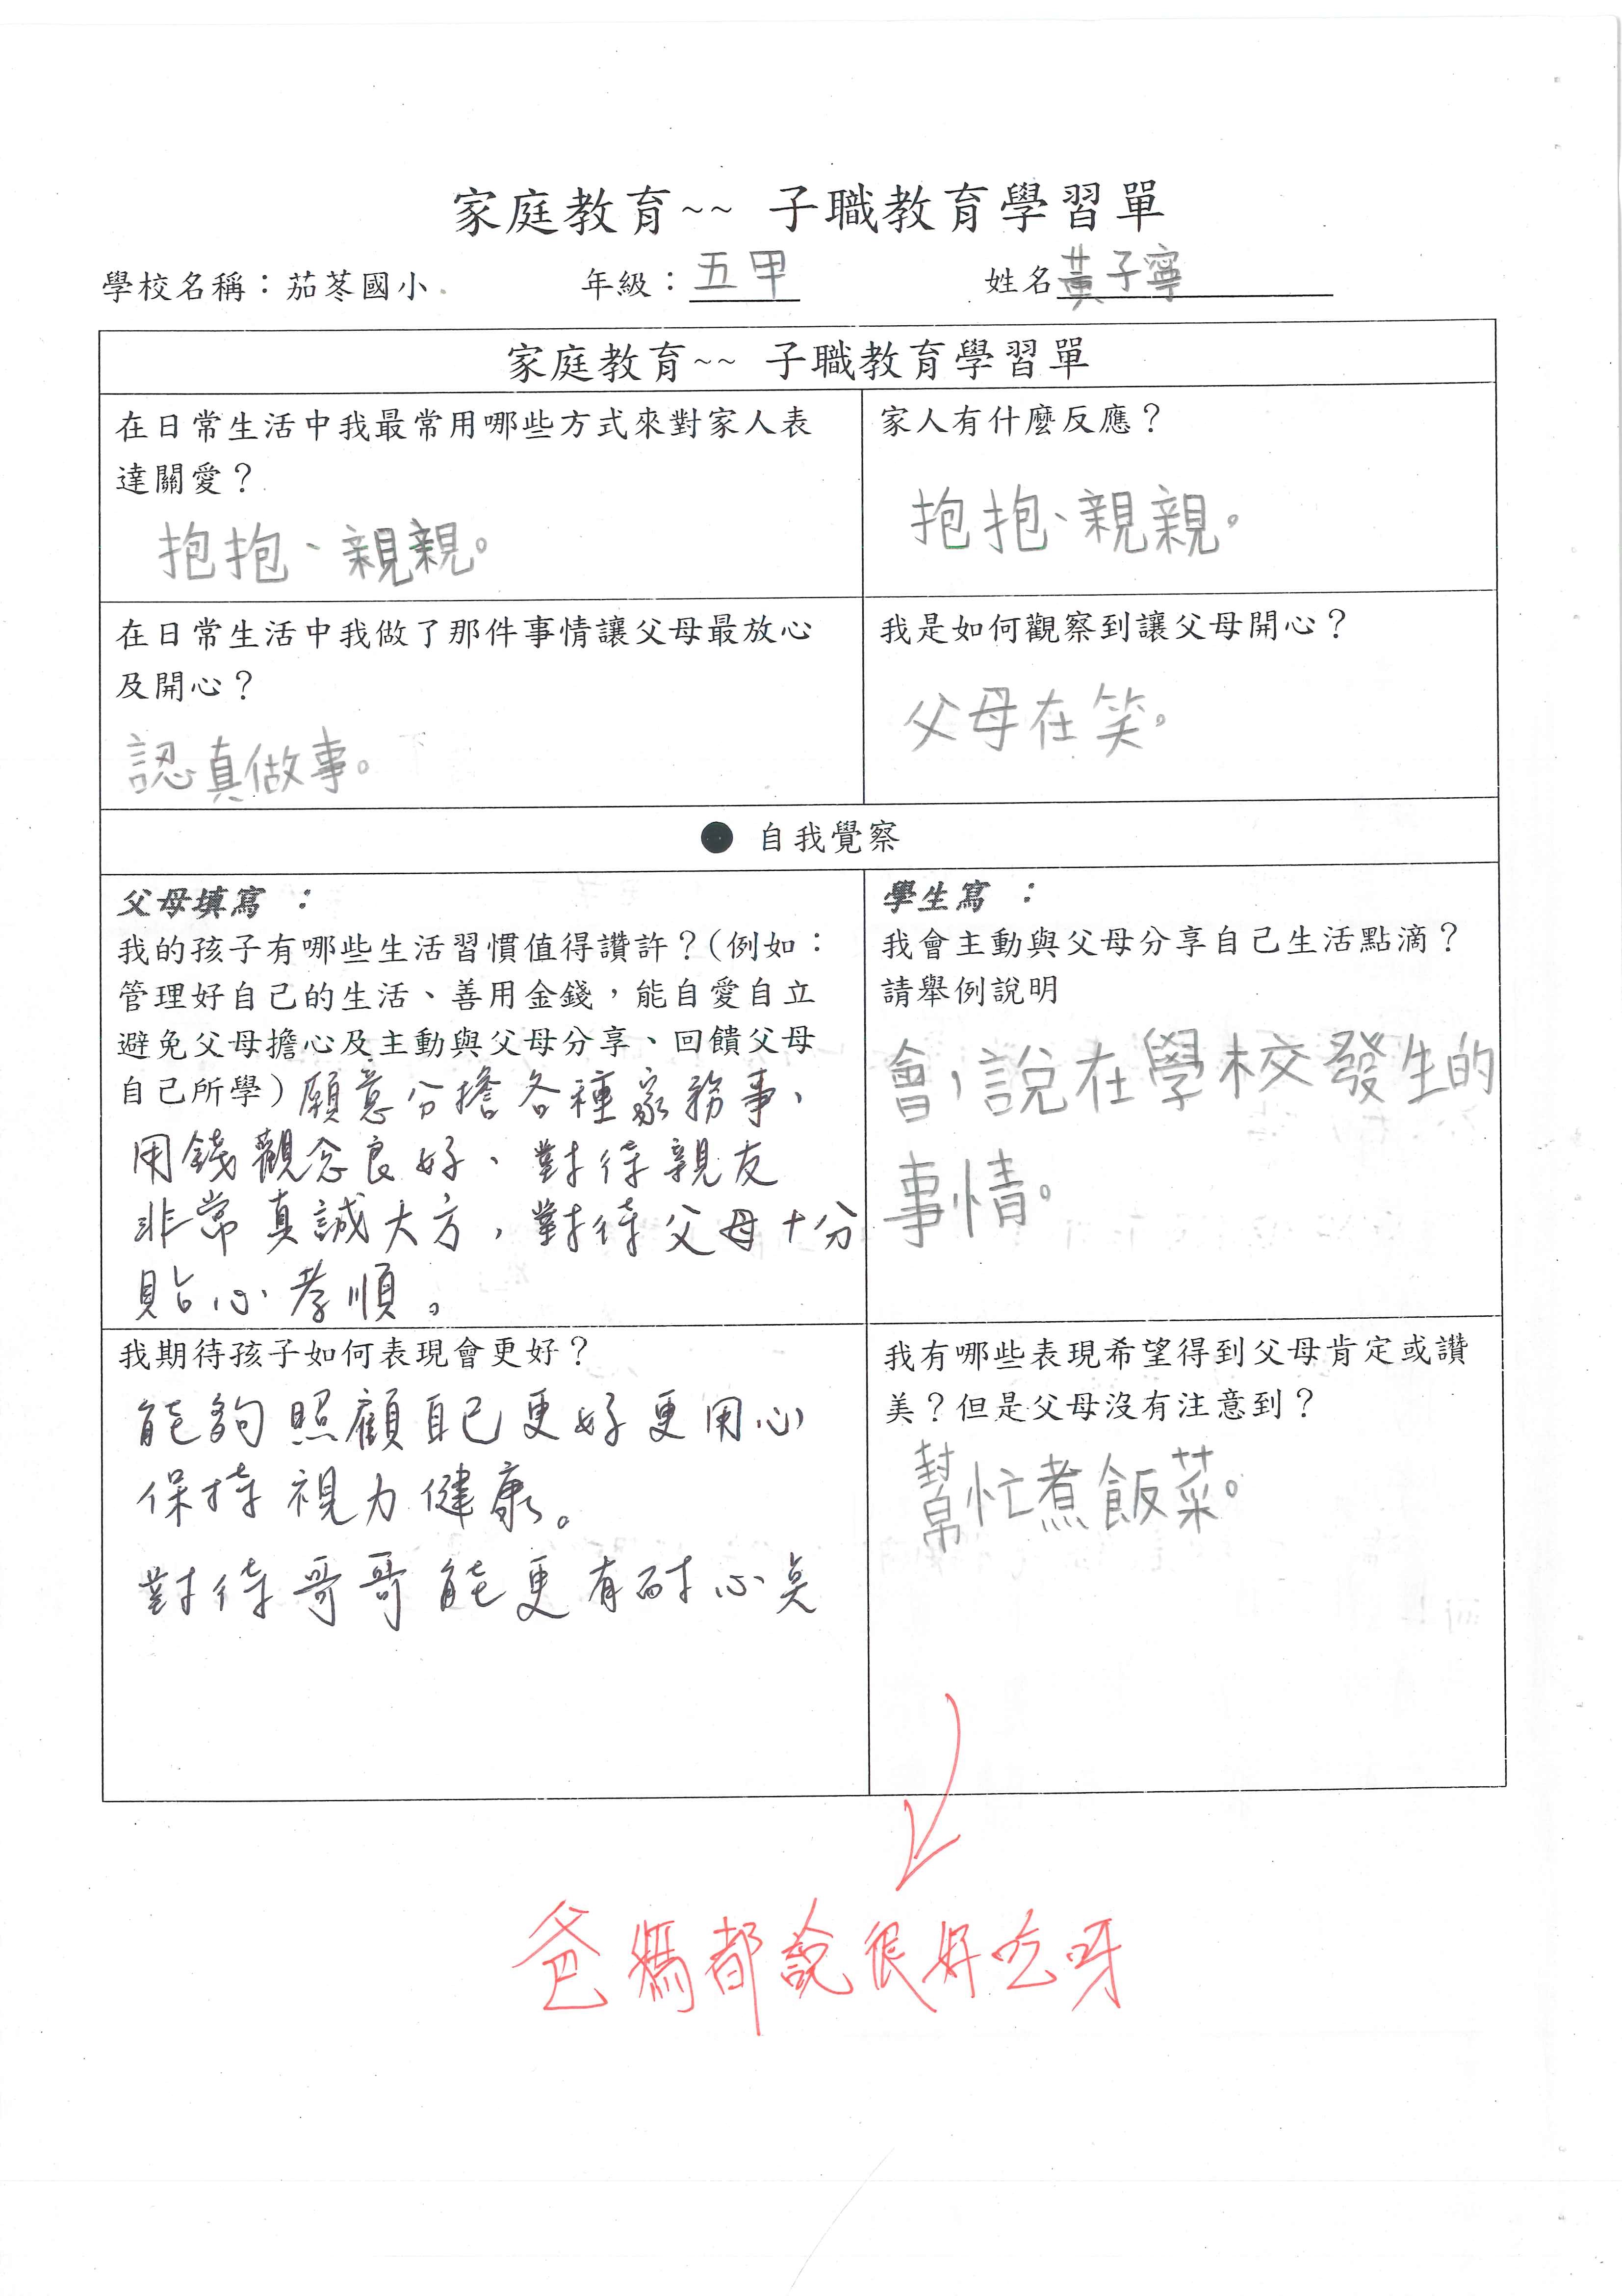 家庭教育~~ 子職教育學習單
學校名稱：茄苳國小 年級：五甲 姓名黃子寧
家庭教育~~ 子職教育學習單
在日常生活中我最常用哪些方式來對家人表
達關愛？
抱抱、親親。
家人有什麼反應？
抱抱、親親。
在日常生活中我做了那件事情讓父母最放心
及開心？
認真做事。
我是如何觀察到讓父母開心？
父母在笑。
● 自我覺察
父母填寫 ：
我的孩子有哪些生活習慣值得讚許？(例如：
管理好自己的生活、善用金錢，能自愛自立
避免父母擔心及主動與父母分享、回饋父母
自己所學) 願意分擔各種家務事、
用錢觀念良好、對待親友
非常真誠大方，對待父母十分
貼心孝順。
學生寫 ：
我會主動與父母分享自己生活點滴？
請舉例說明
會，說在學校發生的
事情。
我期待孩子如何表現會更好？
能夠照顧自己更好更用心
保持視力健康。
對待哥哥能更有耐心點
我有哪些表現希望得到父母肯定或讚
美？但是父母沒有注意到？
幫忙煮飯菜。
爸媽都說很好吃呀